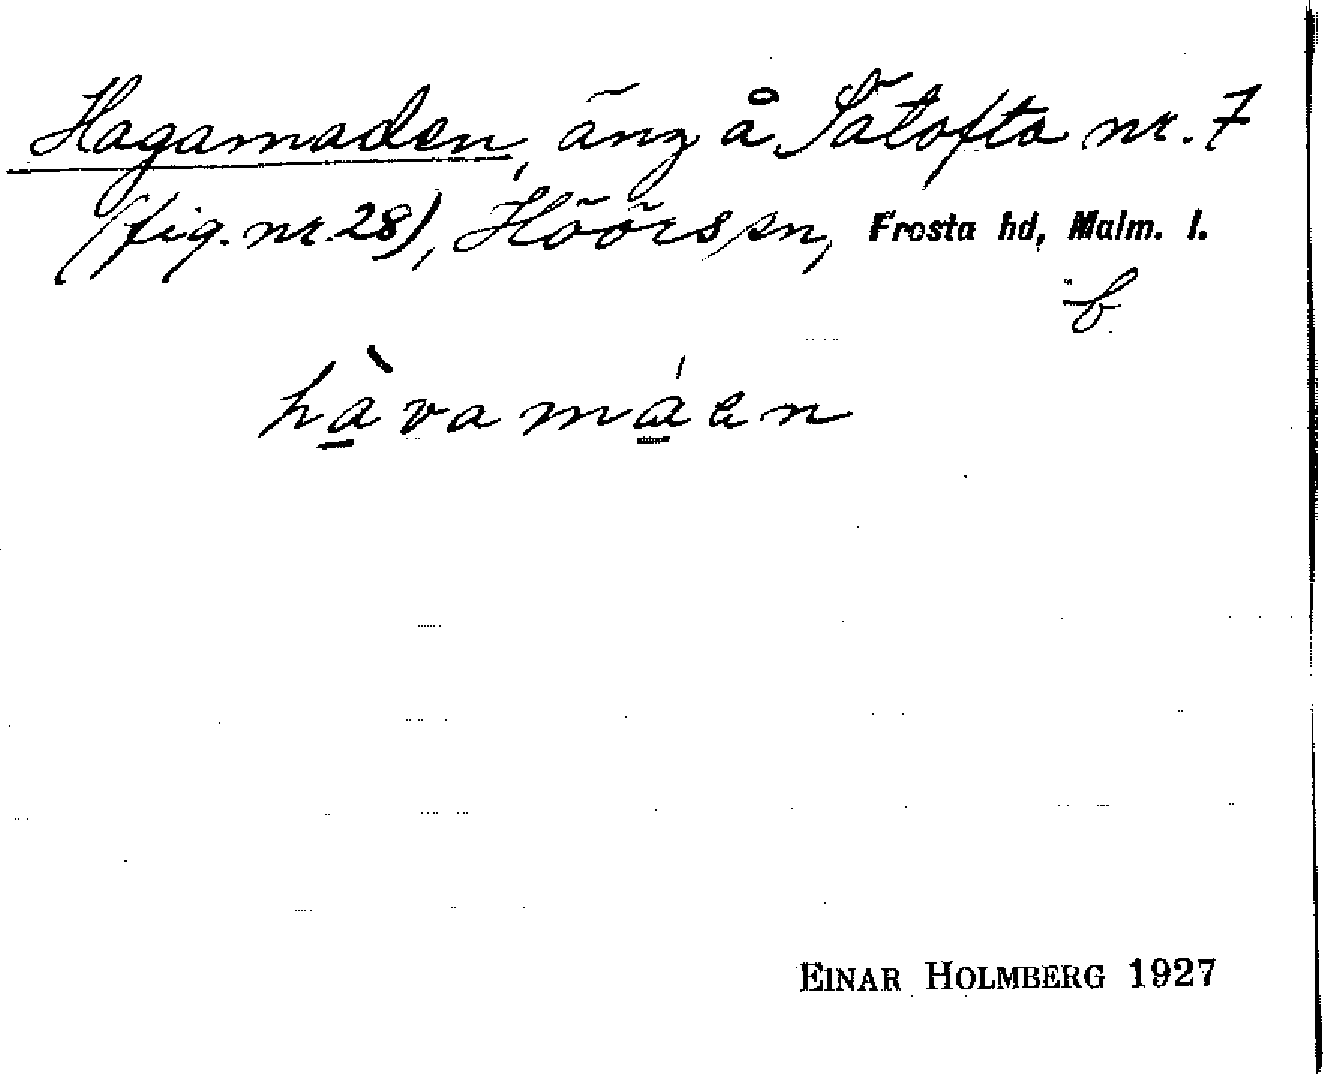 Hagamaden, äng å Sätofta nr. 7
(fig. nr. 28), Höörs sn, Frosta hd, Malm. l.
f
hà̠vamá̠en
EINAR HOLMBERG 1927